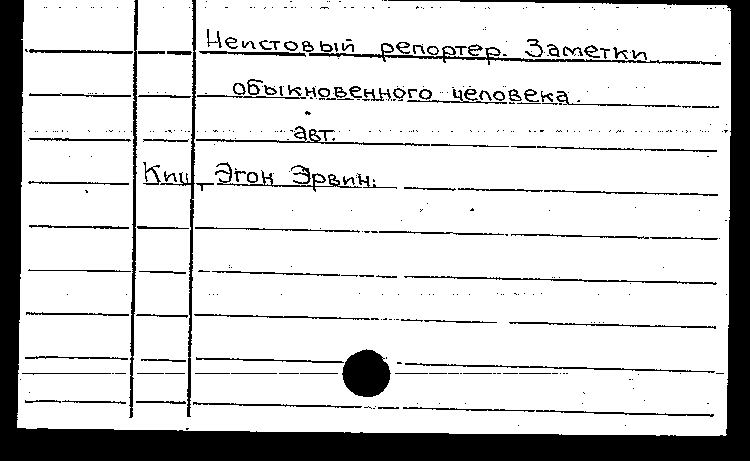 Неистовый репортер. Заметки
обыкновенного человека.
авт.
Киш, Эгон Эрвин.